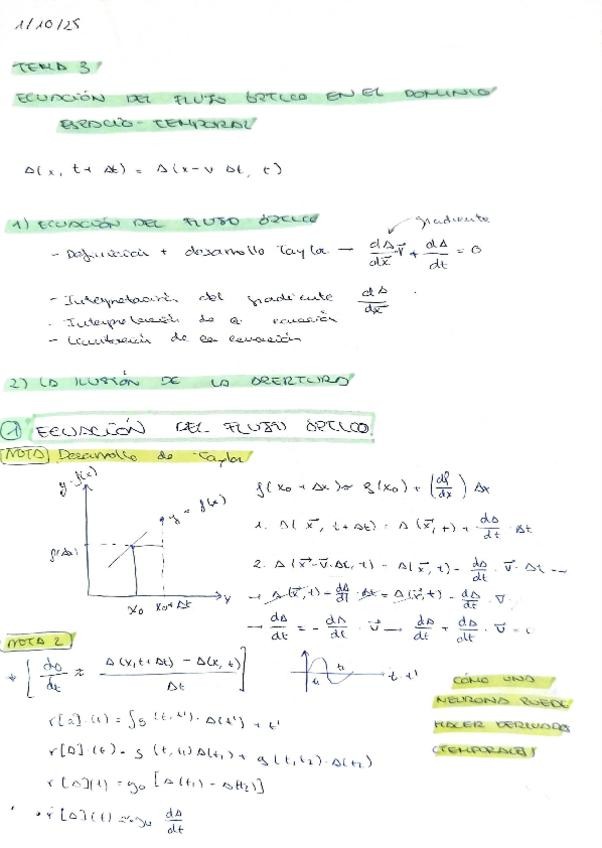 1/10/25
TEMA 3
ECUACIÓN DEL FLUJO ÓPTICO EN EL DOMINIO
ESPACIO-TEMPORAL
Δ(x, t+Δt) = Δ(x-v Δt, t)
1) ECUACIÓN DEL FLUJO ÓPTICO
gradiente
- Definición + desarrollo Taylor → dΔ/dx⃗ · v⃗ + dΔ/dt = 0
- Interpretación del gradiente dΔ/dx⃗
- Interpretación de la ecuación
- Limitación de la ecuación
2) LA ILUSIÓN DE LA APERTURA
① ECUACIÓN DEL FLUJO ÓPTICO
NOTA Desarrollo de Taylor
y=f(x)
y = f(x)
x₀ x₀+Δt x
f(x₀ + Δx) ≈ f(x₀) + (df/dx) Δx
1. Δ(x⃗, t+Δt) = Δ(x⃗, t) + dΔ/dt · Δt
2. Δ(x⃗-v⃗·Δt, t) = Δ(x⃗, t) - dΔ/dt · v⃗ · Δt →
→ Δ(x⃗, t) - dΔ/dt · Δt = Δ(x⃗, t) - dΔ/dt · v
→ dΔ/dt = - dΔ/dt · v⃗ → dΔ/dt + dΔ/dt · v⃗ =
NOTA 2
* [dΔ/dt ≈ Δ(x, t+Δt) - Δ(x, t) / Δt]
t₁ t₂ t-t'
CÓMO UNA
NEURONA PUEDE
HACER DERIVADAS
(TEMPORALES)
r[Δ](t) = ∫g(t, t')·Δ(t') + t'
r[Δ](t) = g(t, t₁)Δ(t₁) + g(t, t₂)·Δ(t₂)
r[Δ](t) = g₀ [Δ(t₁) - Δ(t₂)]
r[Δ](t) ≈ g₀ dΔ/dt